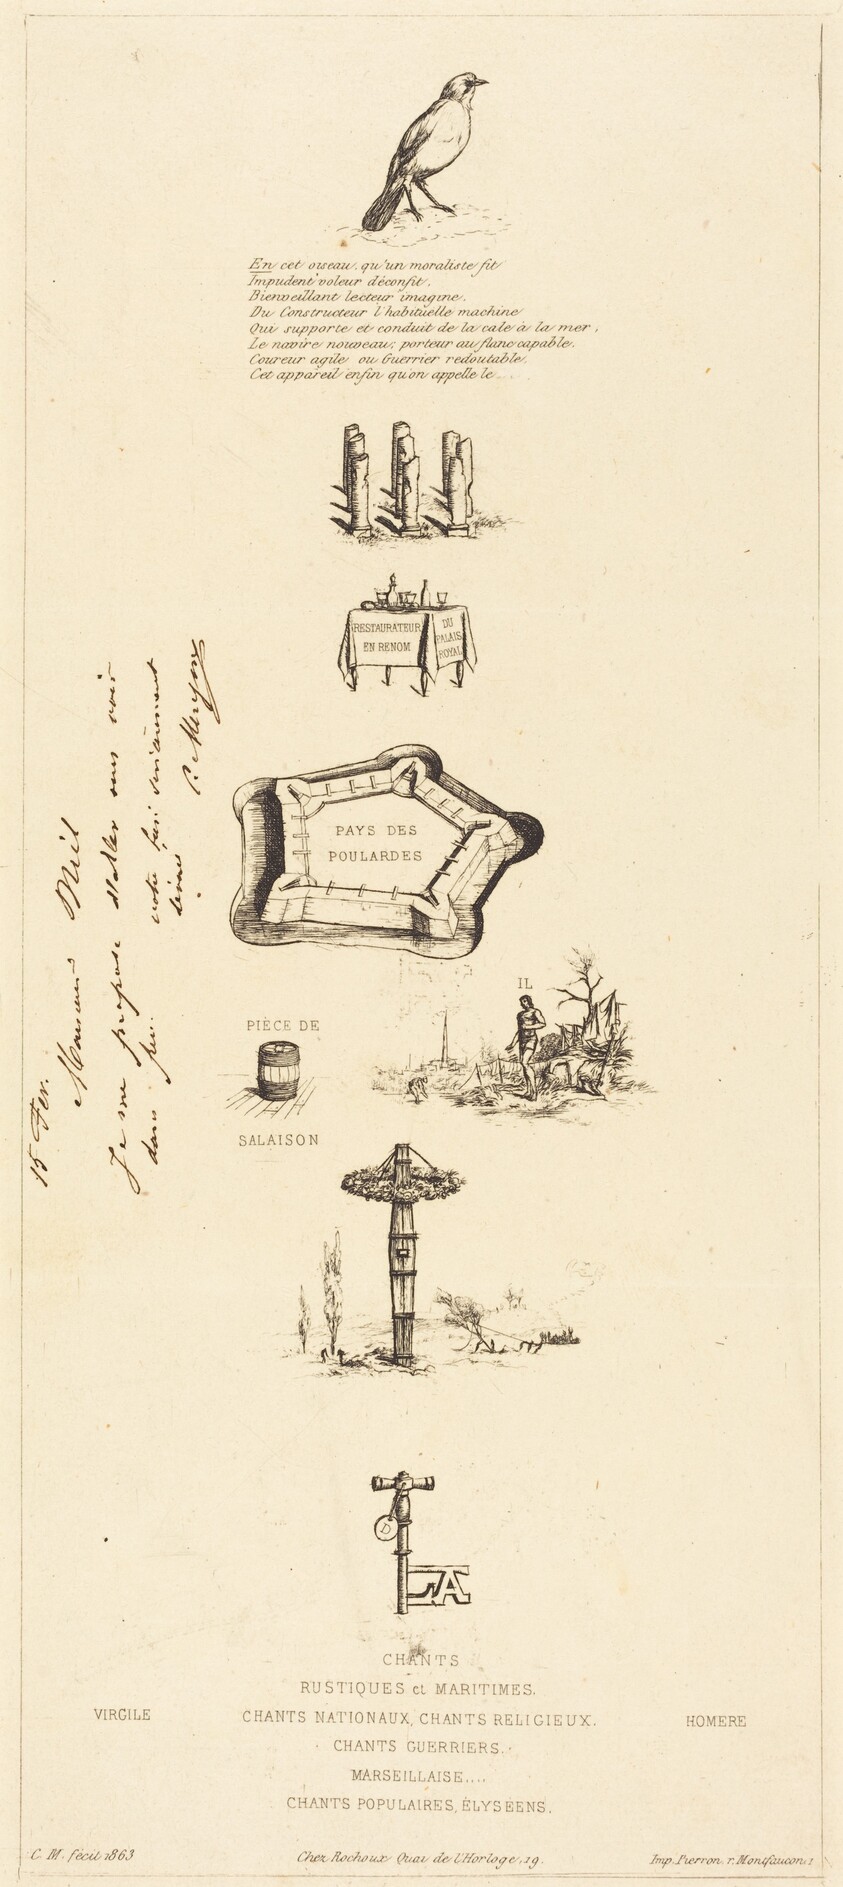 En cet oiseau, qu'un moraliste fit
Impudent voleur déconfit,
Bienveillant lecteur imagine,
Du Constructeur l'habituelle machine
Qui supporte et conduit de la cale à la mer,
Le navire nouveau; porteur au flanc capable,
Coureur agile ou Guerrier redoutable,
Cet appareil enfin qu'on appelle le .....
RESTAURATEUR
EN RENOM
DU
PALAIS
ROYAL
PAYS DES
POULARDES
15 Fev.
Monsieur Niel
Je me propose d'aller vous voir
dans peu.
votre bien sincèrement
C. Meryon
IL
PIÈCE DE
SALAISON
D
LA
CHANTS
RUSTIQUES et MARITIMES.
VIRGILE
CHANTS NATIONAUX, CHANTS RELIGIEUX.
HOMERE
CHANTS GUERRIERS.
MARSEILLAISE....
CHANTS POPULAIRES, ÉLYSÉENS.
C. M. fécit 1863
Chez Rochoux Quai de l'Horloge, 19.
Imp. Pierron r. Montfaucon, 1